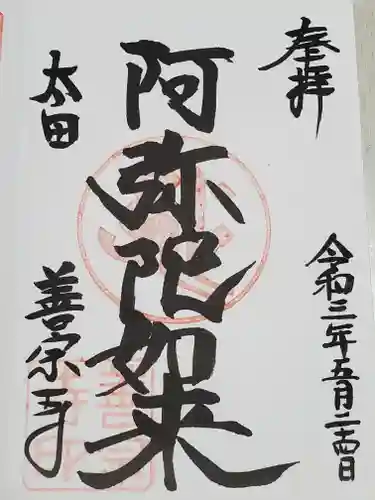 奉拝
令和三年五月二十四日
阿弥陀如来
太田
善宗寺